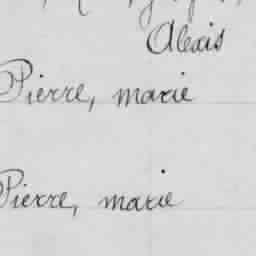 Alexis
Pierre, marie
Pierre, marie